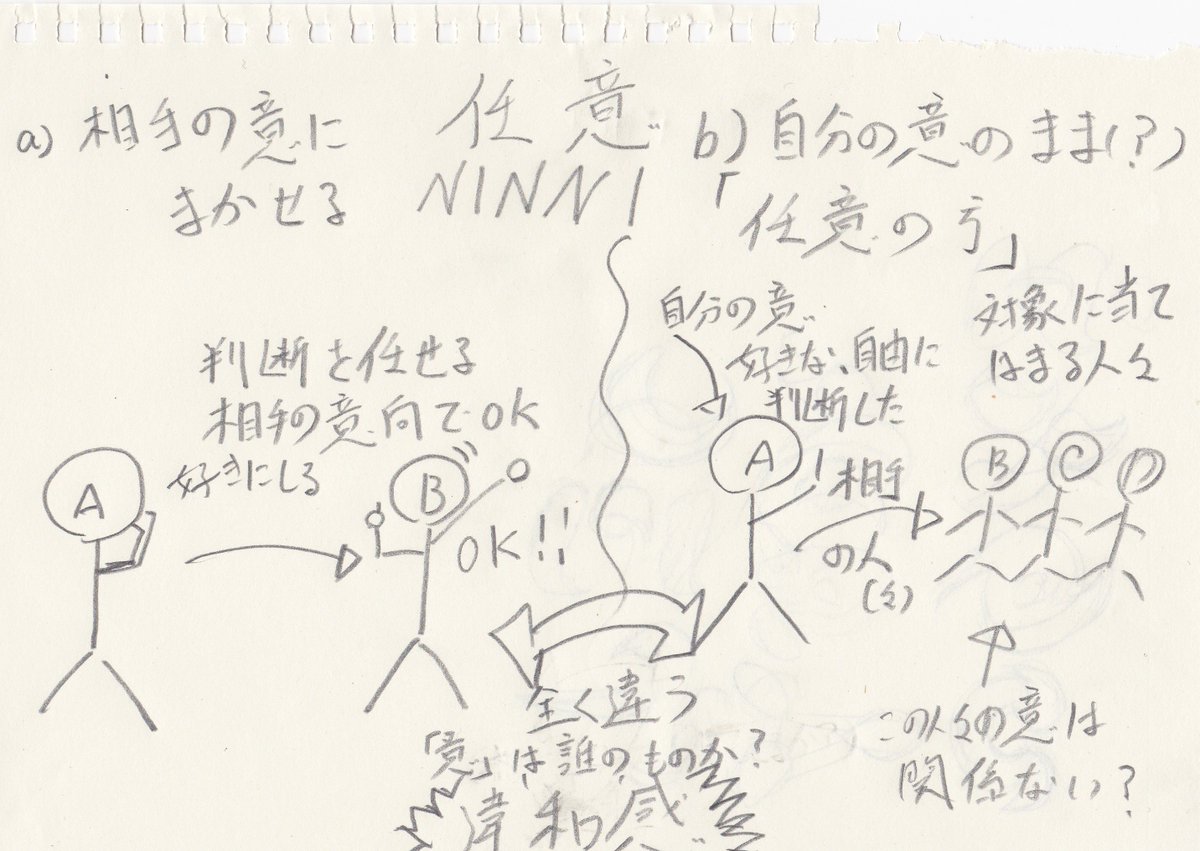 任意
NINNI
a) 相手の意に
まかせる
判断を任せる
相手の意向でOK
好きにしろ
A
B
OK!!
b) 自分の意のまま(?)
「任意の 」
自分の意
好きな、自由に
判断した
対象に当て
はまる人々
A
相手
の人
(々)
B
C
D
この人々の意は
関係ない?
全く違う
「意」は誰のものか?
違和感